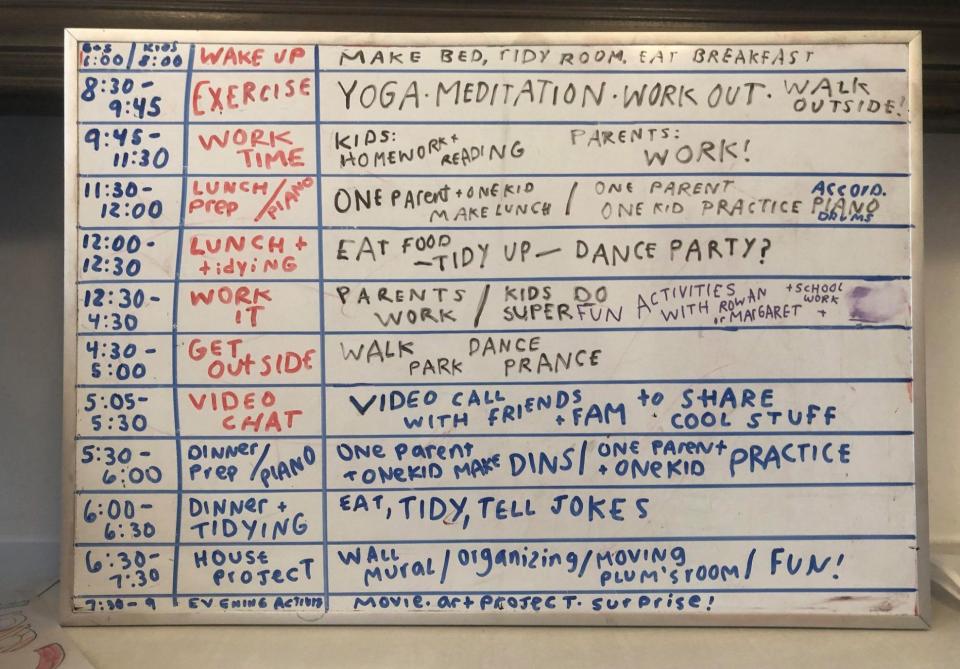 6:00 / KIDS 8:00 WAKE UP MAKE BED, TIDY ROOM, EAT BREAKFAST
8:30-
9:45
EXERCISE
YOGA · MEDITATION · WORK OUT · WALK
OUTSIDE!
9:45-
11:30
WORK
TIME
KIDS:
HOMEWORK +
READING
PARENTS:
WORK!
11:30-
12:00
LUNCH/
Prep /PIANO
ONE Parent + ONE KID
MAKE LUNCH /
ONE PARENT
ONE KID PRACTICE PIANO
ACCORD.
DRUMS
12:00-
12:30
LUNCH +
tidying
EAT FOOD
—TIDY UP— DANCE PARTY?
12:30-
4:30
WORK
IT
PARENTS
WORK /
KIDS DO
SUPER FUN ACTIVITIES
WITH ROWAN
or MARGARET +
+ SCHOOL
WORK
4:30-
5:00
GET
OUTSIDE
WALK DANCE
PARK PRANCE
5:05-
5:30
VIDEO
CHAT
VIDEO CALL
WITH FRIENDS
+ FAM
to SHARE
COOL STUFF
5:30-
6:00
DINNER/
Prep /PIANO
ONE Parent
+ ONE KID MAKE DINS/
ONE PARENT
+ ONE KID PRACTICE
6:00-
6:30
DINNER +
TIDYING
EAT, TIDY, TELL JOKES
6:30-
7:30
HOUSE
ProJECT
WALL
Mural / Organizing / MOVING
PLUM'S ROOM / FUN!
7:30-9 EVENING ACTIVITY MOVIE · art PROJECT · surprise!